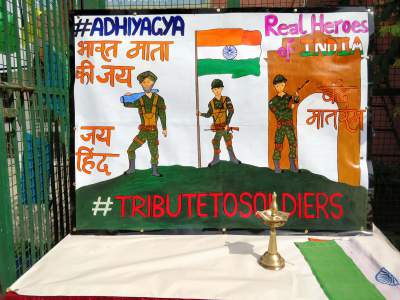 #ADHIYAGYA
भारत माता
की जय
जय
हिंद
Real Heroes
of INDIA
वंदे
मातरम
#TRIBUTETOSOLDIERS